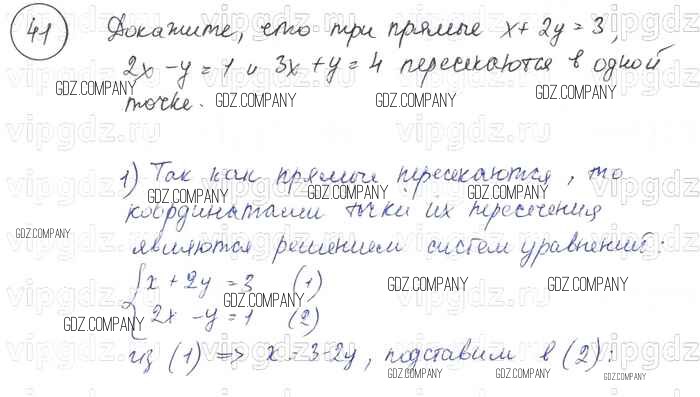 41 Докажите, что три прямые x + 2y = 3,
2x - y = 1 и 3x + y = 4 пересекаются в одной
точке.
1) Так как прямые пересекаются, то
координатами точки их пересечения
являются решением систем уравнений:
{ x + 2y = 3 (1)
2x - y = 1 (2)
из (1) => x = 3-2y, подставим в (2):